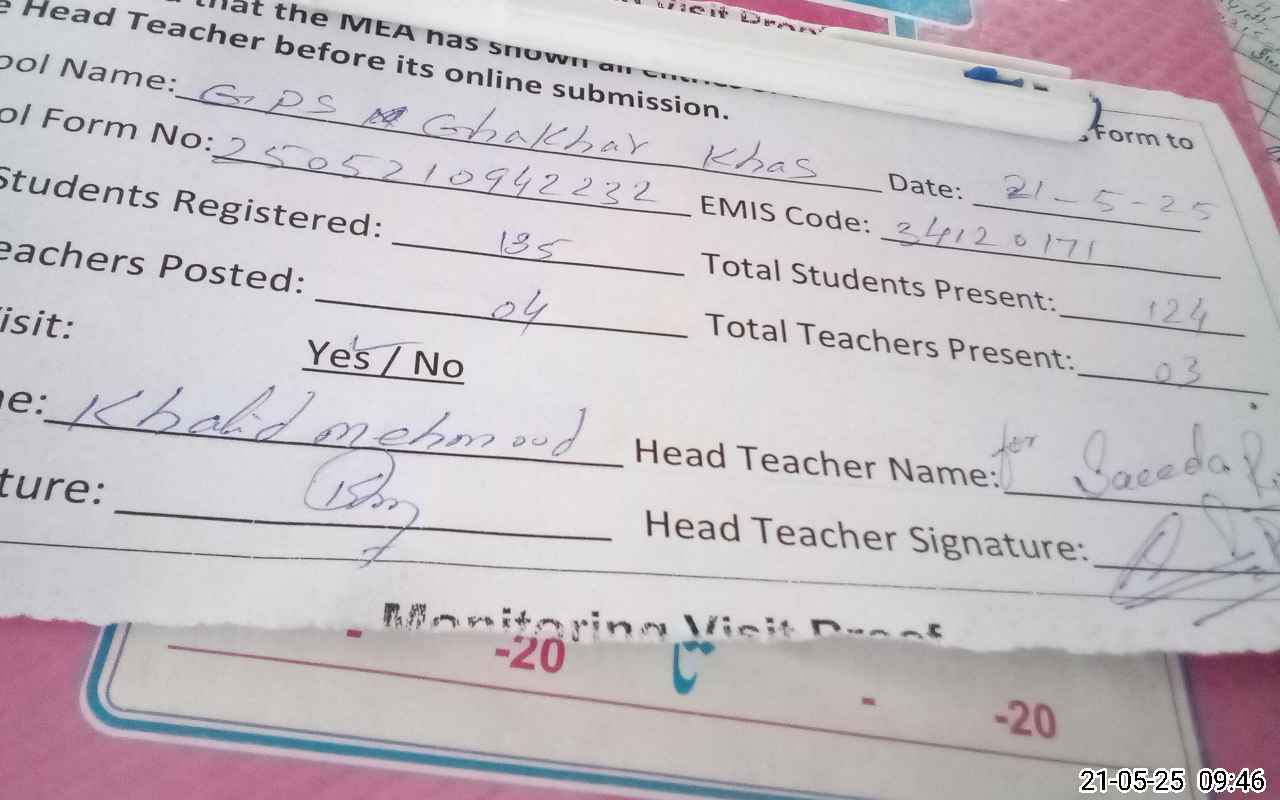 that the MEA has shown all
e Head Teacher before its online submission.
Form to
ool Name: GPS Ghakhar Khas Date: 21-5-25
ol Form No: 250521094 2232 EMIS Code: 34120171
Students Registered: 135 Total Students Present: 124
eachers Posted: 04 Total Teachers Present: 03
isit: Yes / No
e: Khalid mehmood Head Teacher Name: for Saeeda R
ture: Head Teacher Signature:
Monitoring Visit Proof
-20
-20
21-05-25 09:46